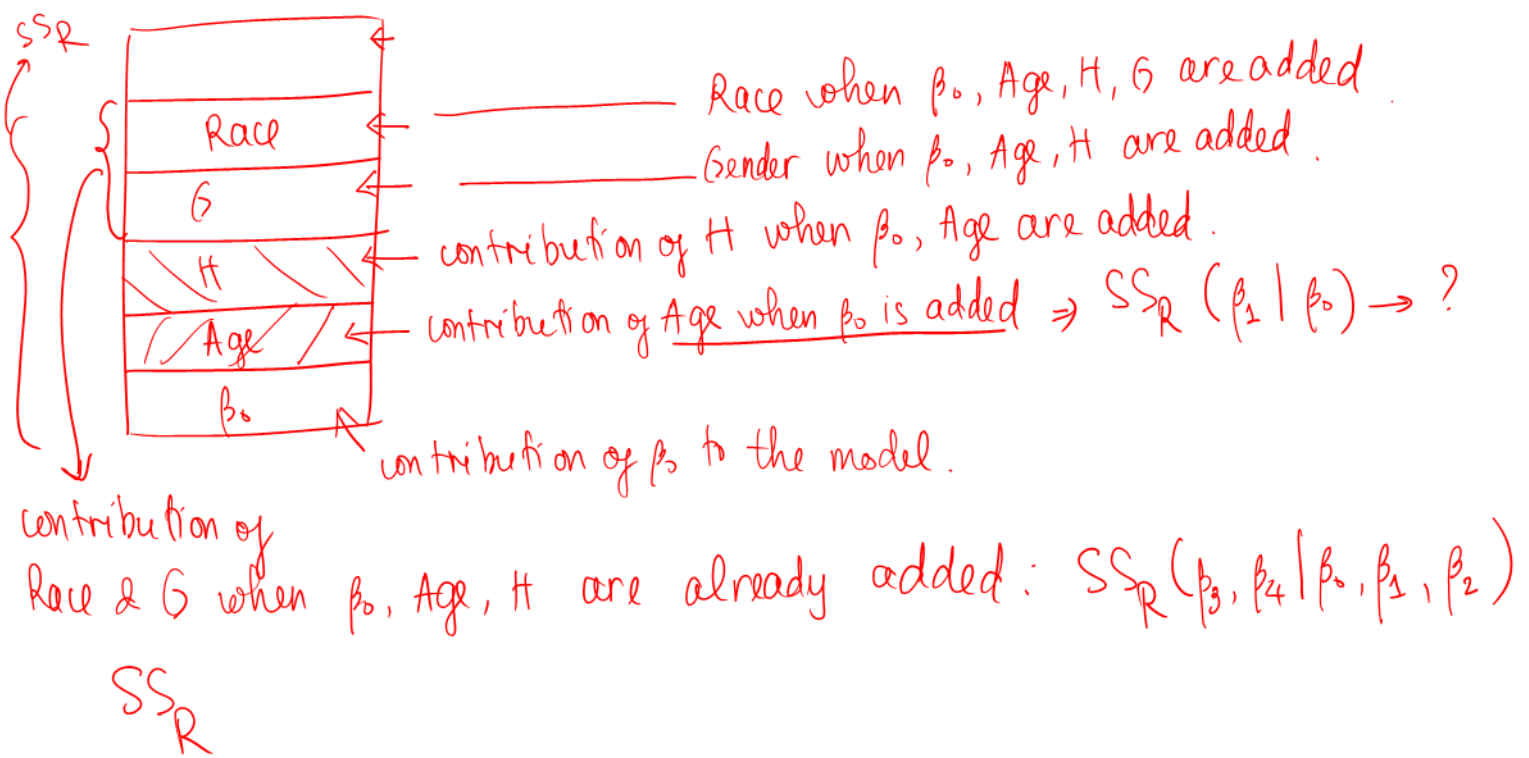 SSR
Race when β₀, Age, H, G are added.
Race
Gender when β₀, Age, H are added.
G
contribution of H when β₀, Age are added.
H
contribution of Age when β₀ is added ⇒ SS_R (β₁ | β₀) → ?
Age
β₀
contribution of β₀ to the model.
contribution of
Race & G when β₀, Age, H are already added : SS_R (β₃, β₄ | β₀, β₁, β₂)
SS_R